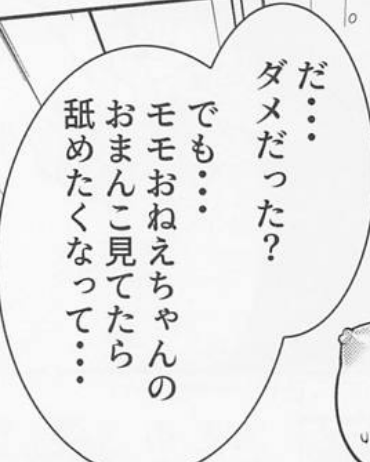 だ・・・
ダメだった？
でも・・・
モモおねえちゃんの
おまんこ見てたら
舐めたくなって・・・